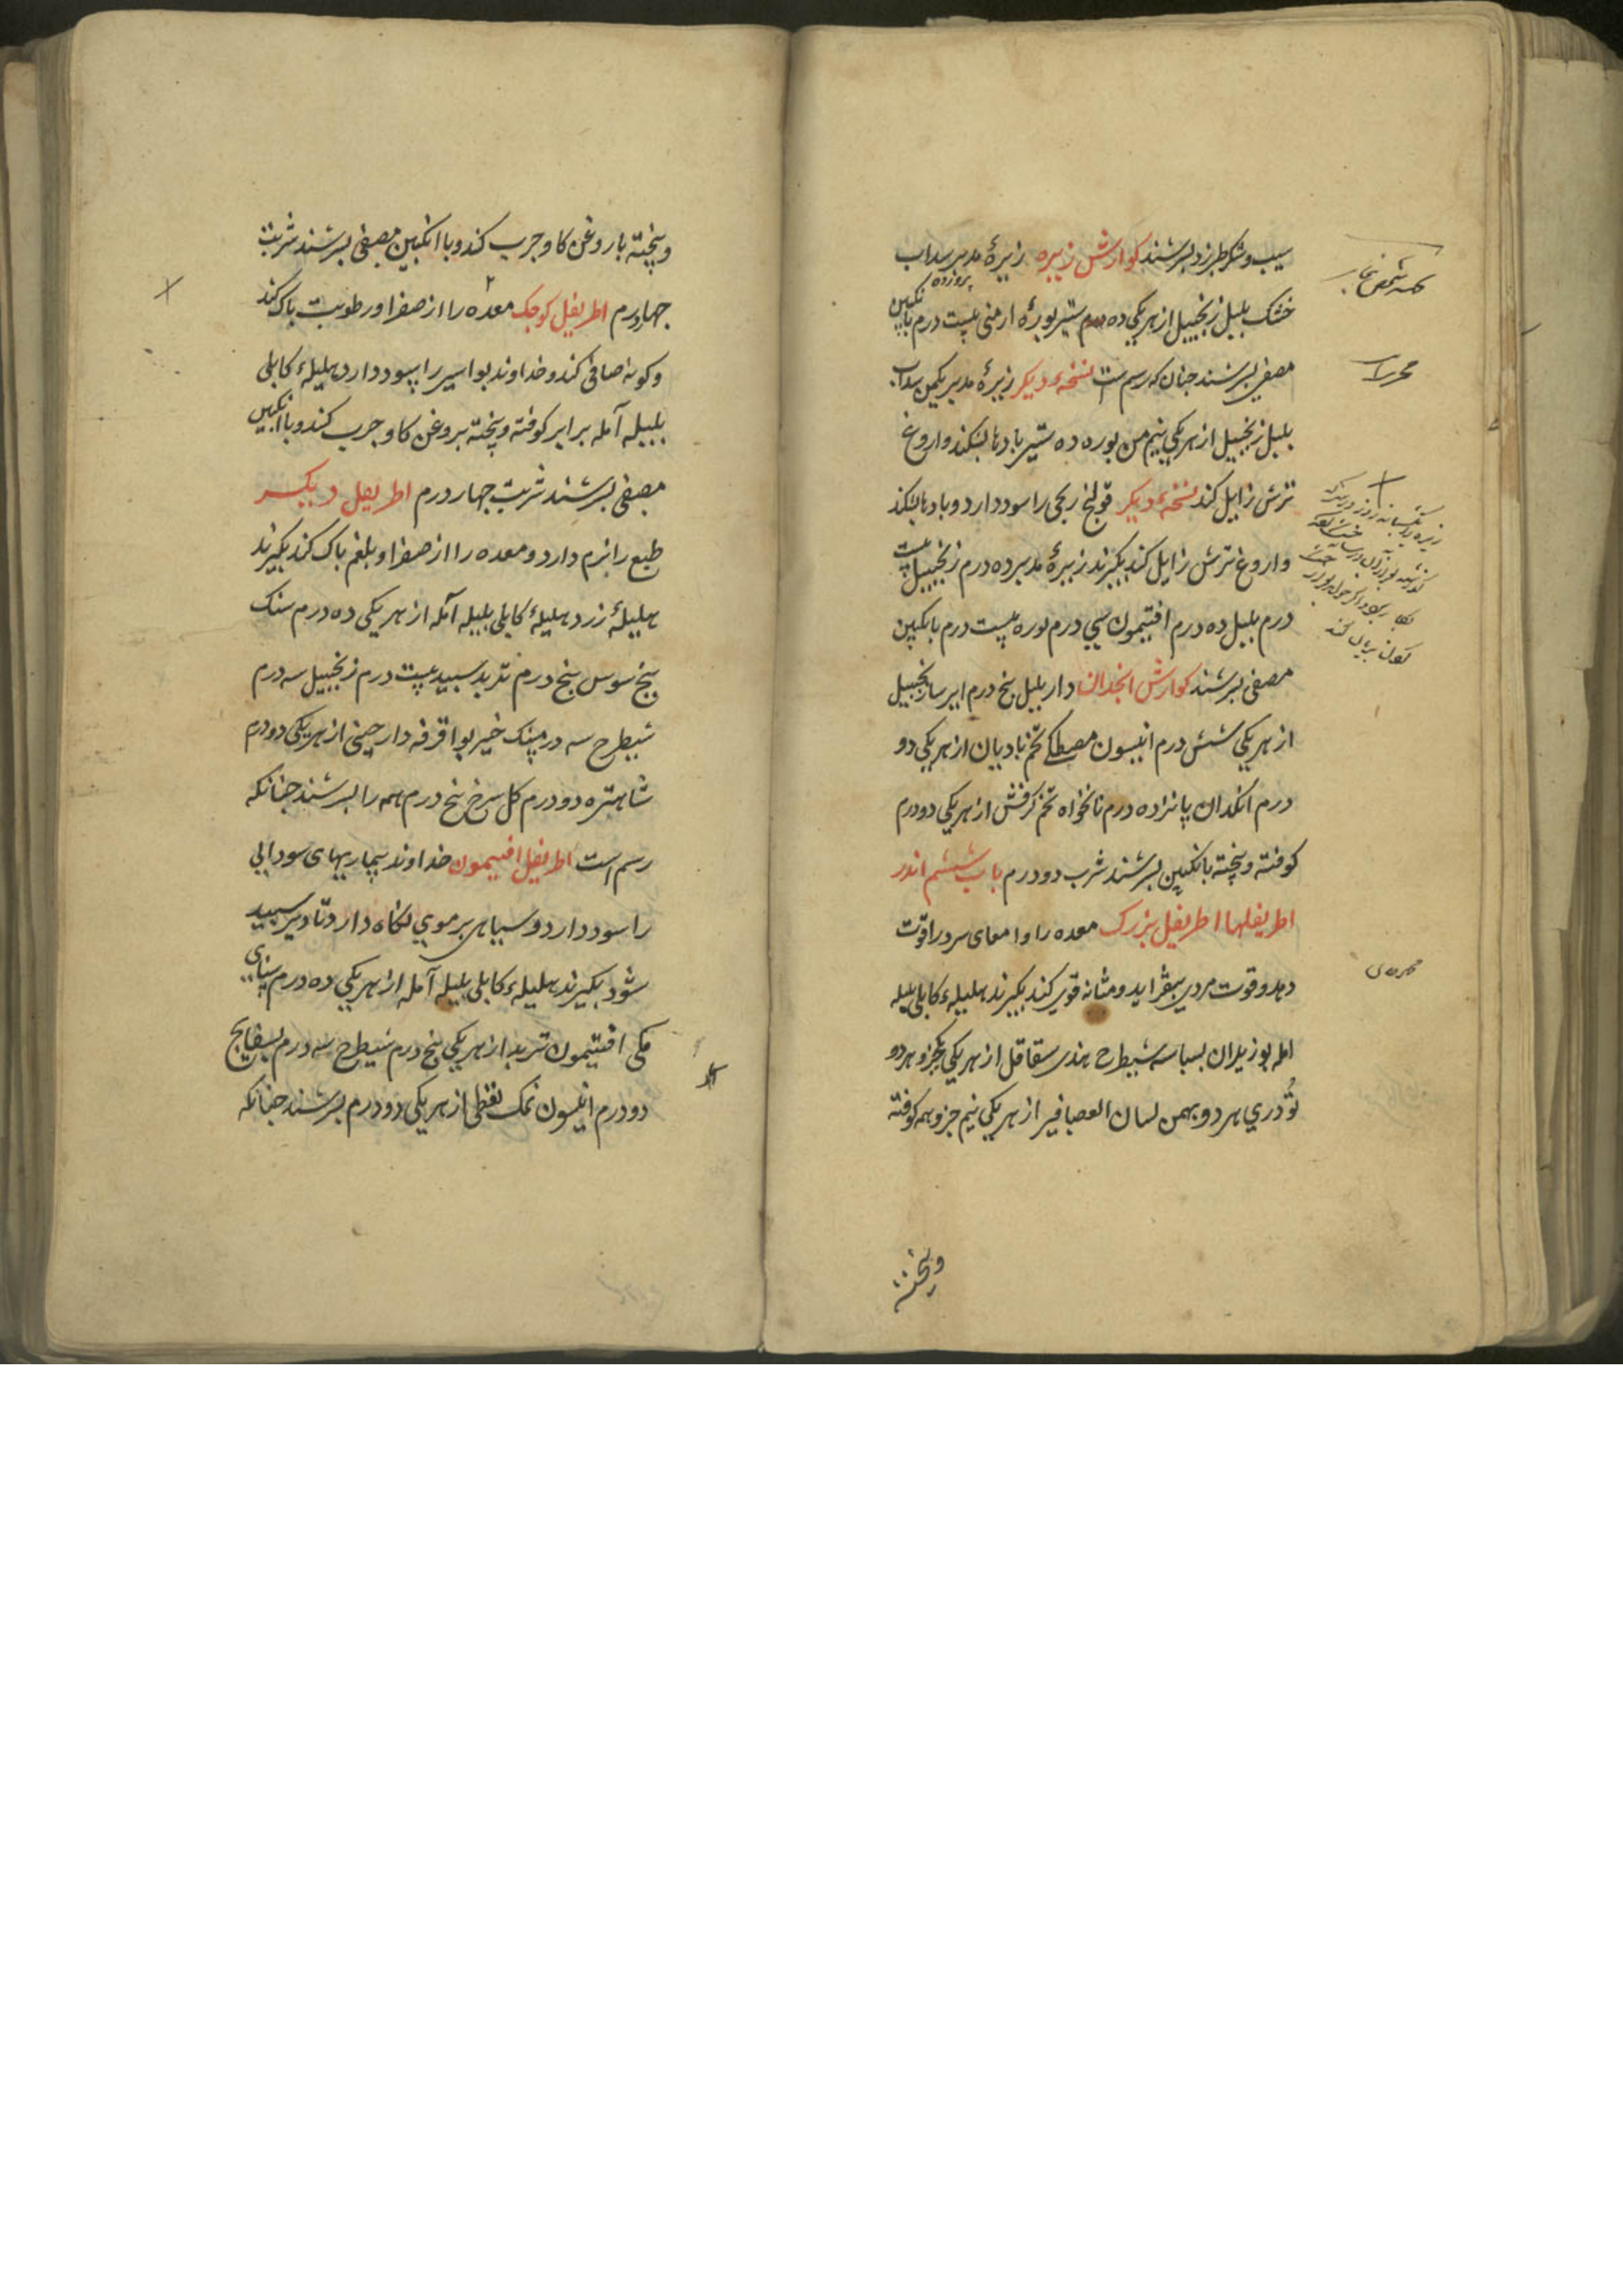 سیب و شکر طبرزد بسرشند کوارش زیره زیرهٔ مدبر سداب
خشک بلبل زنجبیل از هریکی ده درم ستیر بورهٔ ارمنی بیست درم بانکبین
مصفی بسرشند جنان که رسم ست نسخهٔ دیکر زیرهٔ مدبر یکمن سداب
بلبل زنجبیل از هریکی نیم من بوره ده ستیر بادها بشکند و اروغ
ترش زایل کند نسخهٔ دیکر قولنج ریحی را سود دارد و بادها بشکند
و اروغ ترش زایل کند بکیرند زیرهٔ مدبر ده درم زنجبیل بیست
درم بلبل ده درم افتیمون سی درم بوره بیست درم بانکبین
مصفی بسرشند کوارش انجدان دار بلبل بنج درم ایرسا زنجبیل
از هریکی شش درم انیسون مصطکی تخم بادیان از هریکی دو
درم انکدان پانزده درم نانخواه تخم کرفش از هریکی دو درم
کوفته و بیخته بانکبین بسرشند شرب دو درم باب ششم اندر
اطریفلها اطریفل بزرک معده را و امعای سرد را قوت
دهد و قوت مردی بیفزاید و مثانه قوی کند بکیرند هلیلهٔ کابلی بلیله
امله بوزیدان بسباسه شیطرح هندی سقاقل از هریکی یکجزو هردو
تودری هر دو بهمن لسان العصافیر از هریکی نیم جزو همه کوفته
و بیخته
و بیخته با روغن کاو جرب کند و با انکبین مصفی بسرشند شربت
جهاردرم اطریفل کوجک معده را از صفرا و رطوبت باک کند
و کونه صافی کند و خداوند بواسیر را سود دارد هلیلهٔ کابلی
بلیله آمله برابر کوفته و بیخته بروغن کاو جرب کند و با انکبین
مصفی بسرشند شربت جهار درم اطریفل دیکر
طبع را نرم دارد و معده را از صفرا و بلغم باک کند بکیرند
هلیلهٔ زرد هلیلهٔ کابلی بلیله آمله از هریکی ده درم سنک
بیخ سوس بنج درم تربد سبید بیست درم زنجبیل سه درم
شیطرح سه درمسنک خیربوا قرفه دارجینی از هریکی دو درم
شاهتره دو درم کل سرخ بنج درم همه را بسرشند جنانکه
رسم است اطریفل افتیمون خداوند بیماریهای سودایی
را سود دارد و سیاهی بر موی نکاه دارد تا دیر سبید
شود بکیرند هلیلهٔ کابلی بلیله آمله از هریکی ده درم سنای
مکی افتیمون تربد از هریکی بنج درم شیطرح سه درم بسفایج
دو درم انیسون نمک نفطی از هریکی دو درم بسرشند جنانکه